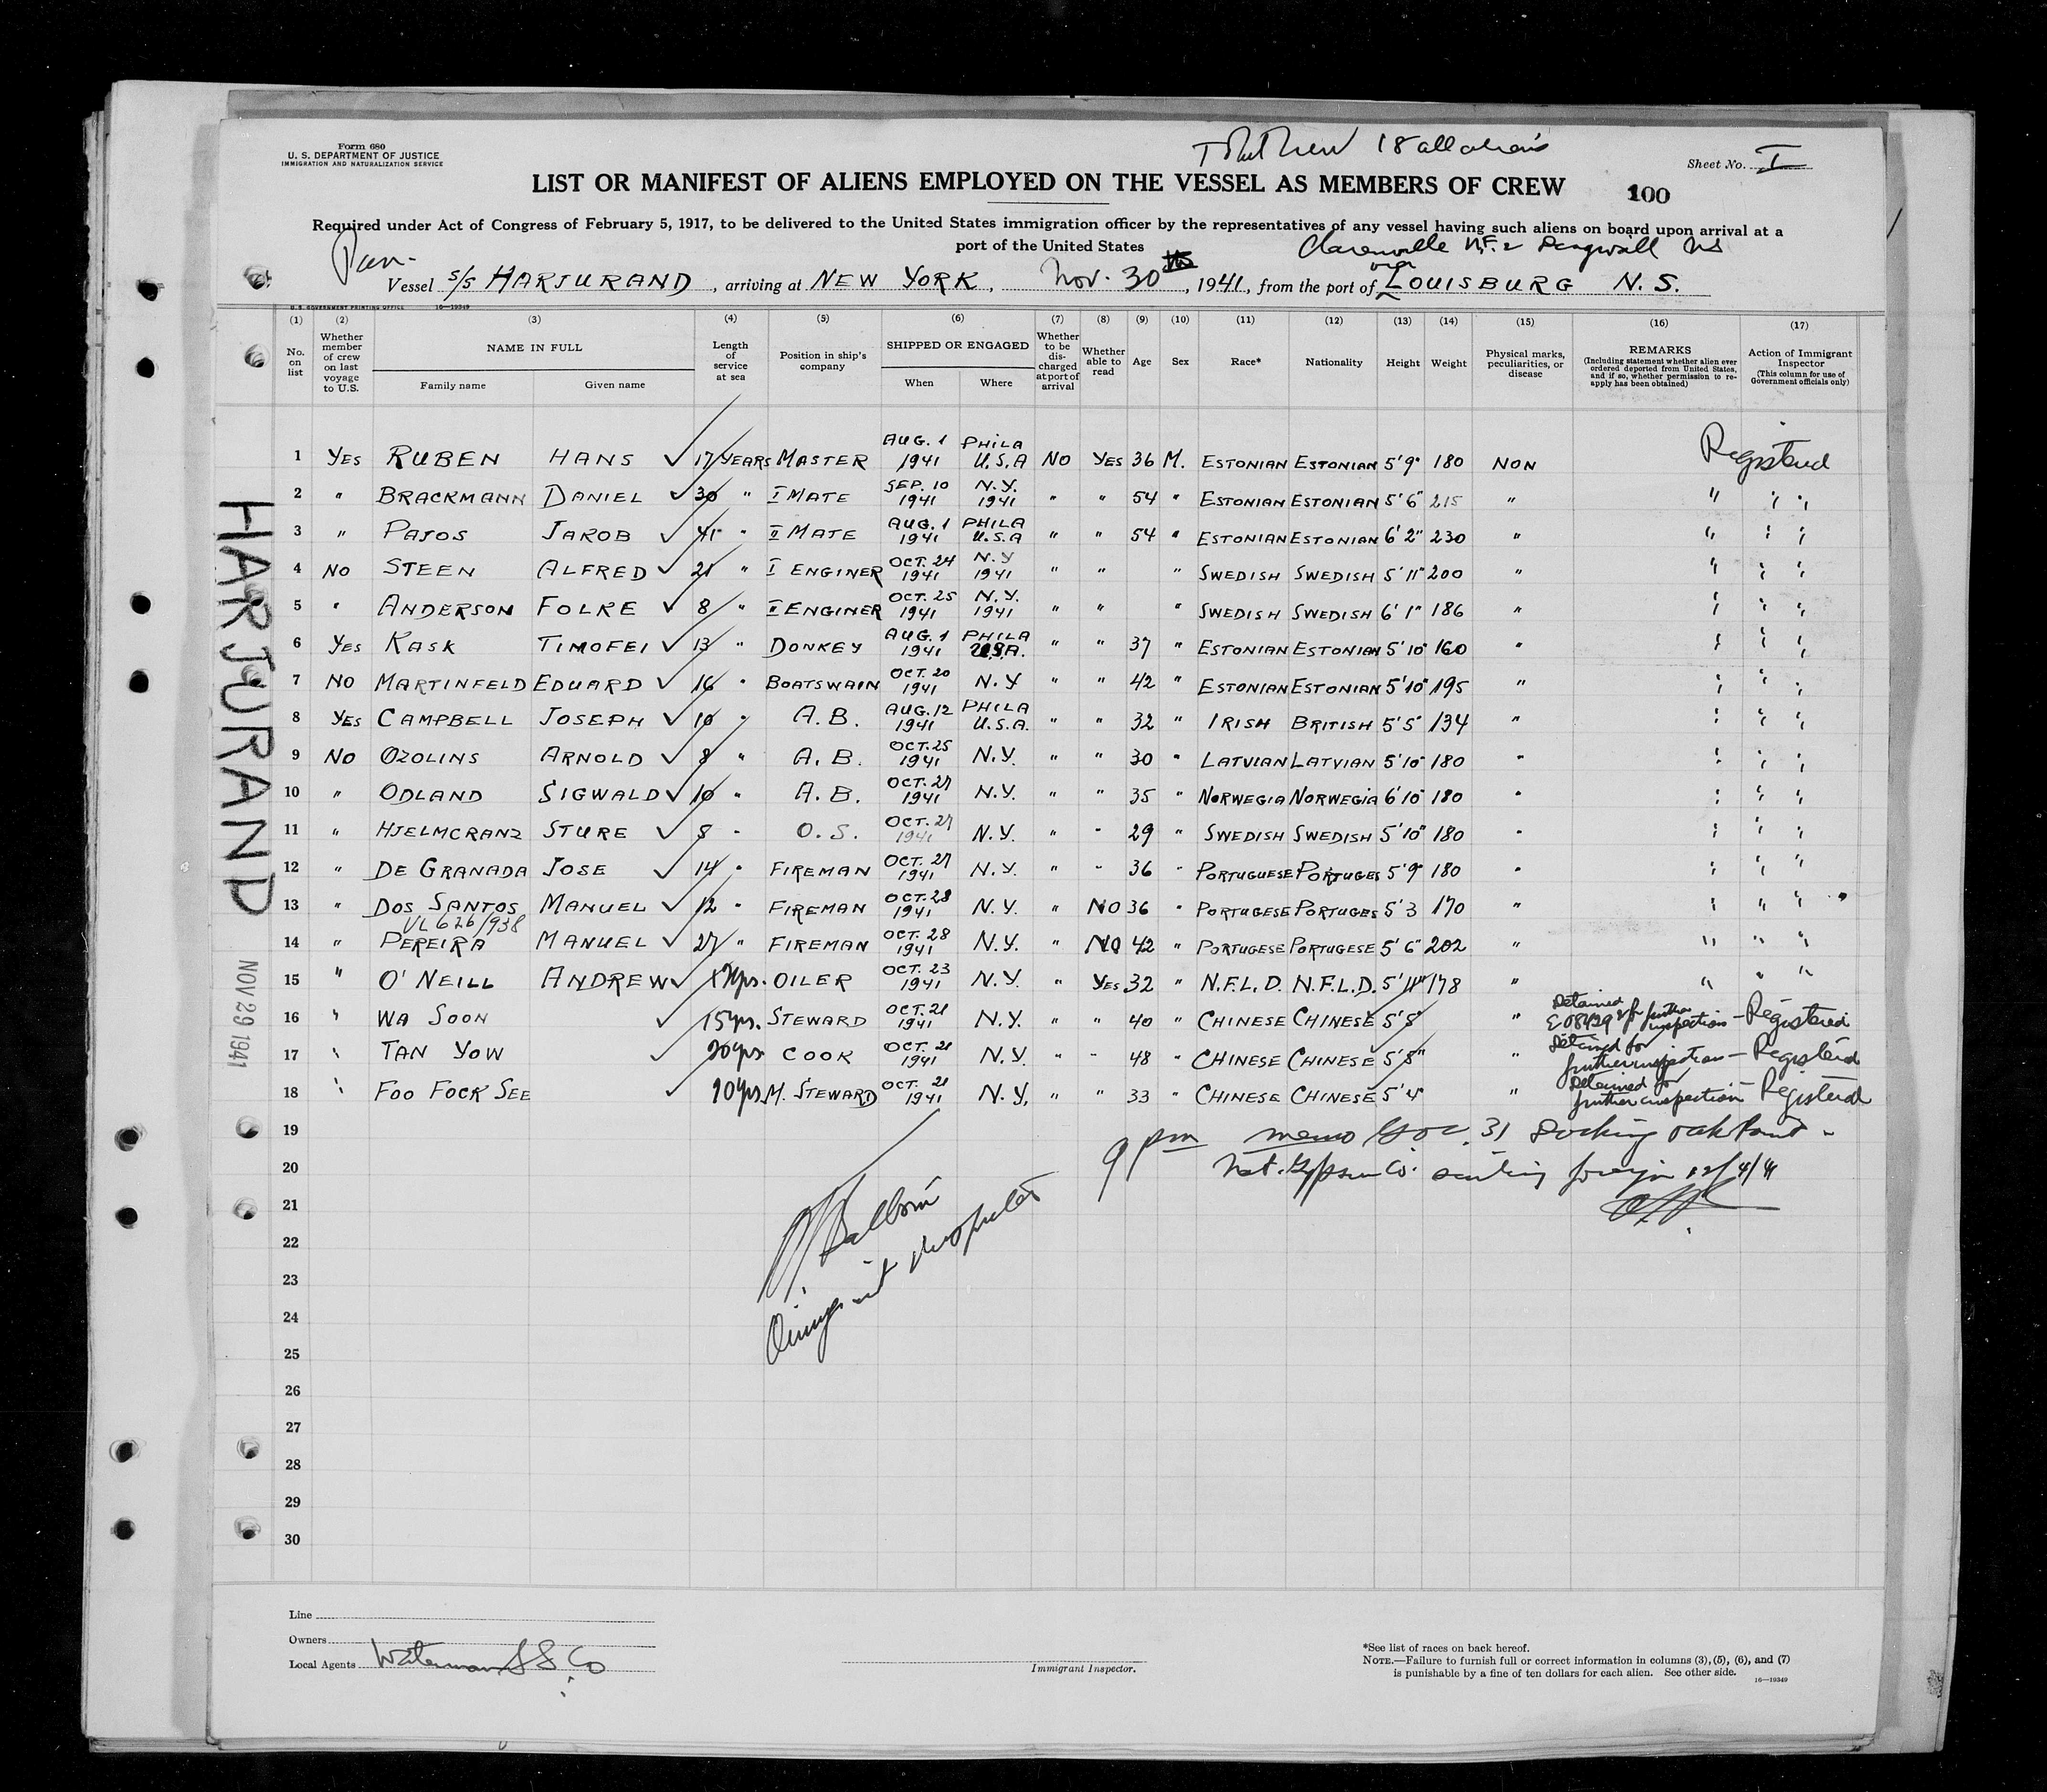 Form 680
U. S. DEPARTMENT OF JUSTICE
IMMIGRATION AND NATURALIZATION SERVICE
18 all aliens
Sheet No. I
LIST OR MANIFEST OF ALIENS EMPLOYED ON THE VESSEL AS MEMBERS OF CREW
100
Required under Act of Congress of February 5, 1917, to be delivered to the United States immigration officer by the representatives of any vessel having such aliens on board upon arrival at a
port of the United States
Pan-
Clarenville N.F. & Dingwall NS
via
Vessel S/S HARJURAND, arriving at NEW YORK, Nov. 30th, 1941, from the port of LOUISBURG N.S.
U. S. GOVERNMENT PRINTING OFFICE 16—19349
(1) (2) (3) (4) (5) (6) (7) (8) (9) (10) (11) (12) (13) (14) (15) (16) (17)
No. on list
Whether member of crew on last voyage to U.S.
NAME IN FULL
Family name
Given name
Length of service at sea
Position in ship's company
SHIPPED OR ENGAGED
When
Where
Whether to be discharged at port of arrival
Whether able to read
Age
Sex
Race*
Nationality
Height
Weight
Physical marks, peculiarities, or disease
REMARKS
(Including statement whether alien ever ordered deported from United States, and if so, whether permission to reapply has been obtained)
Action of Immigrant Inspector
(This column for use of Government officials only)
1 YES RUBEN HANS ✓ 17 YEARS MASTER AUG. 1 1941 PHILA U.S.A NO YES 36 M. ESTONIAN ESTONIAN 5'9" 180 NON Registered
2 " BRACKMANN DANIEL ✓ 30 " I MATE SEP. 10 1941 N.Y. 1941 " " 54 " ESTONIAN ESTONIAN 5'6" 215 " " " "
3 " PAJOS JAROB ✓ 41 " II MATE AUG. 1 1941 PHILA U.S.A " " 54 " ESTONIAN ESTONIAN 6'2" 230 " " " "
4 NO STEEN ALFRED ✓ 21 " I ENGINER OCT. 24 1941 N.Y 1941 " " " SWEDISH SWEDISH 5'11" 200 " " " "
5 " ANDERSON FOLKE ✓ 8 " II ENGINER OCT. 25 1941 N.Y. 1941 " " " SWEDISH SWEDISH 6'1" 186 " " " "
6 YES KASK TIMOFEI ✓ 13 " DONKEY AUG. 1 1941 PHILA U.S.A. " " 37 " ESTONIAN ESTONIAN 5'10" 160 " " " "
7 NO MARTINFELD EDUARD ✓ 16 " BOATSWAIN OCT. 20 1941 N.Y " " 42 " ESTONIAN ESTONIAN 5'10" 195 " " " "
8 YES CAMPBELL JOSEPH ✓ 10 " A.B. AUG. 12 1941 PHILA U.S.A. " " 32 " IRISH BRITISH 5'5" 134 " " " "
9 NO OZOLINS ARNOLD ✓ 8 " A.B. OCT. 25 1941 N.Y. " " 30 " LATVIAN LATVIAN 5'10" 180 " " " "
10 " ODLAND SIGWALD ✓ 10 " A.B. OCT. 27 1941 N.Y. " " 35 " NORWEGIA NORWEGIA 6'10" 180 " " " "
11 " HJELMCRANZ STURE ✓ 8 " O.S. OCT. 27 1941 N.Y. " " 29 " SWEDISH SWEDISH 5'10" 180 " " " "
12 " DE GRANADA JOSE ✓ 14 " FIREMAN OCT. 27 1941 N.Y. " " 36 " PORTUGUESE PORTUGES 5'9" 180 " " " "
13 " DOS SANTOS MANUEL ✓ 12 " FIREMAN OCT. 28 1941 N.Y. " NO 36 " PORTUGESE PORTUGES 5'3 170 " " " " "
VL 626/938
14 " PEREIRA MANUEL ✓ 27 " FIREMAN OCT. 28 1941 N.Y. " NO 42 " PORTUGESE PORTUGESE 5'6" 202 " " " "
15 " O'NEILL ANDREW ✓ yrs. OILER OCT. 23 1941 N.Y. " YES 32 " N.F.L.D. N.F.L.D. 5'11" 178 " " " "
16 " WA SOON ✓ 15 yrs. STEWARD OCT. 21 1941 N.Y. " " 40 " CHINESE CHINESE 5'5" " Detained for further inspection - Registered
17 " TAN YOW ✓ 20 yrs COOK OCT. 21 1941 N.Y. " " 48 " CHINESE CHINESE 5'8" " Detained for further inspection - Registered
18 " FOO FOCK SEE ✓ 10 yrs M. STEWARD OCT. 21 1941 N.Y. " " 33 " CHINESE CHINESE 5'4" " Detained for further inspection - Registered
19
20
21
22
23
24
25
26
27
28
29
30
9 pm memo 31 Docking Oak Point -
Nat. Gypsum Co. foreign 12/4/41
HARJURAND
NOV 29 1941
Line
Owners
Local Agents Waterman S S Co
Immigrant Inspector.
*See list of races on back hereof.
NOTE.—Failure to furnish full or correct information in columns (3), (5), (6), and (7)
is punishable by a fine of ten dollars for each alien. See other side.
16—19349